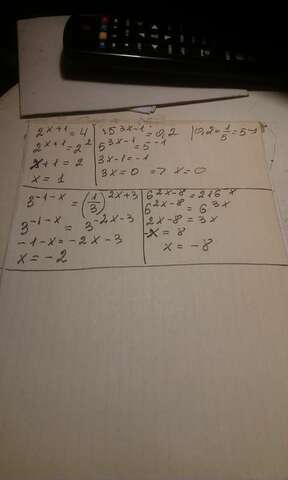 2^{x+1} = 4
2^{x+1} = 2^2
x+1 = 2
x = 1
5^{3x-1} = 0,2 | 0,2 = 1/5 = 5^{-1}
5^{3x-1} = 5^{-1}
3x-1 = -1
3x = 0 => x = 0
3^{-1-x} = (1/3)^{2x+3}
3^{-1-x} = 3^{-2x-3}
-1-x = -2x-3
x = -2
6^{2x-8} = 216^x
6^{2x-8} = 6^{3x}
2x-8 = 3x
-x = 8
x = -8